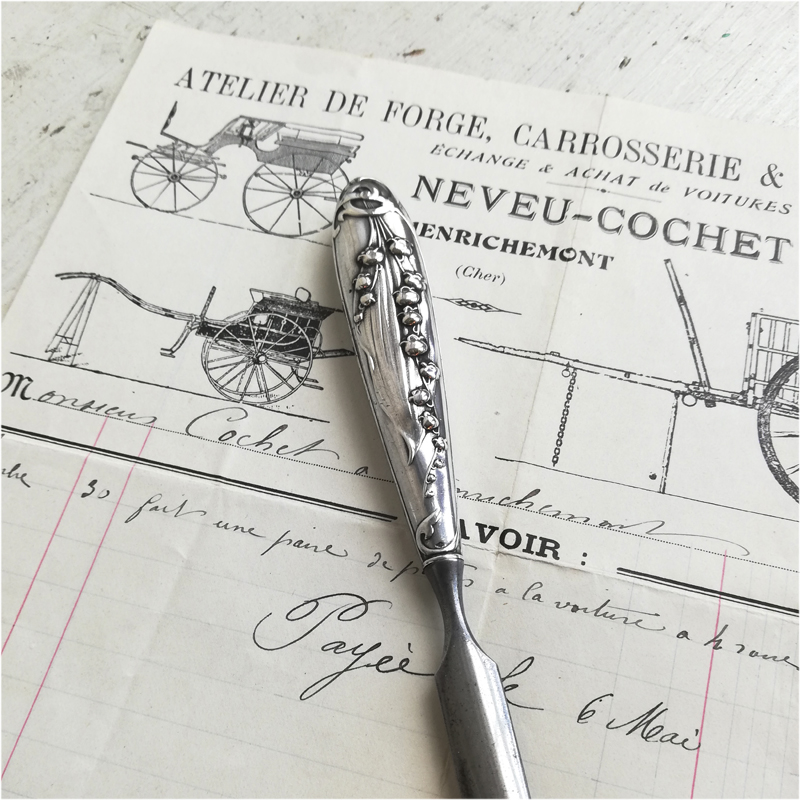 ATELIER DE FORGE, CARROSSERIE &
ÉCHANGE & ACHAT de VOITURES
NEVEU-COCHET
HENRICHEMONT
(Cher)
Monsieur Cochet a
AVOIR :
30 fait une paire de a la voiture a 4 roue
Payée le 6 Mai